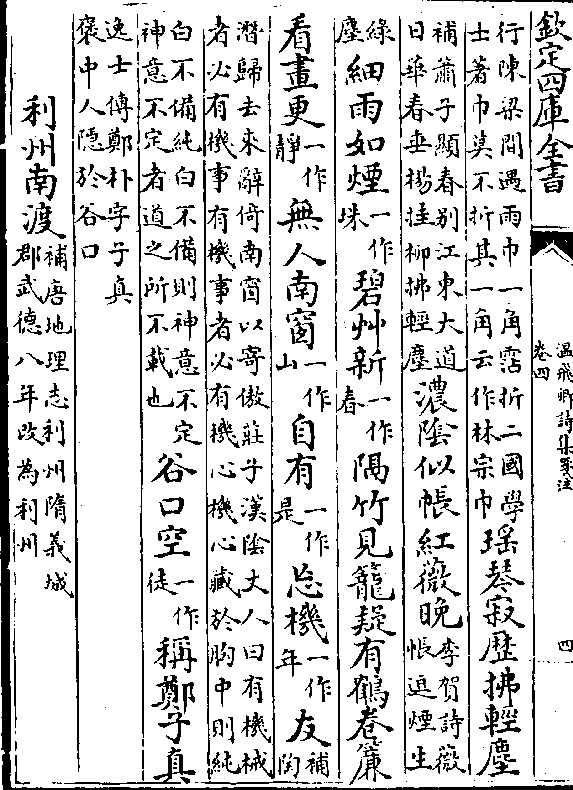 欽定四庫全書
溫飛卿詩集箋注
卷四
四
行陳梁間遇雨巾一角霑折二國學
士著巾莫不折其一角云作林宗巾瑶琴寂歴拂輕塵
補蕭子顯春别江東大道
日華春垂楊挂柳拂輕塵濃陰似帳紅薇晚李賀詩薇
帳逗煙生
緑
塵細雨如煙一作
珠碧艸新一作
春隔竹見籠疑有鶴卷簾
看畫更一作
靜無人南窗一作
山自有一作
是忘機一作
年友補
陶
潛歸去來辭倚南窗以寄傲莊子漢陰丈人曰有機械
者必有機事有機事者必有機心機心藏於胸中則純
白不備純白不備則神意不定
神意不定者道之所不載也谷口空一作
徒稱鄭子真
逸士傳鄭朴字子真
褒中人隠於谷口
利州南渡補唐地理志利州隋義城
郡武德八年改為利州